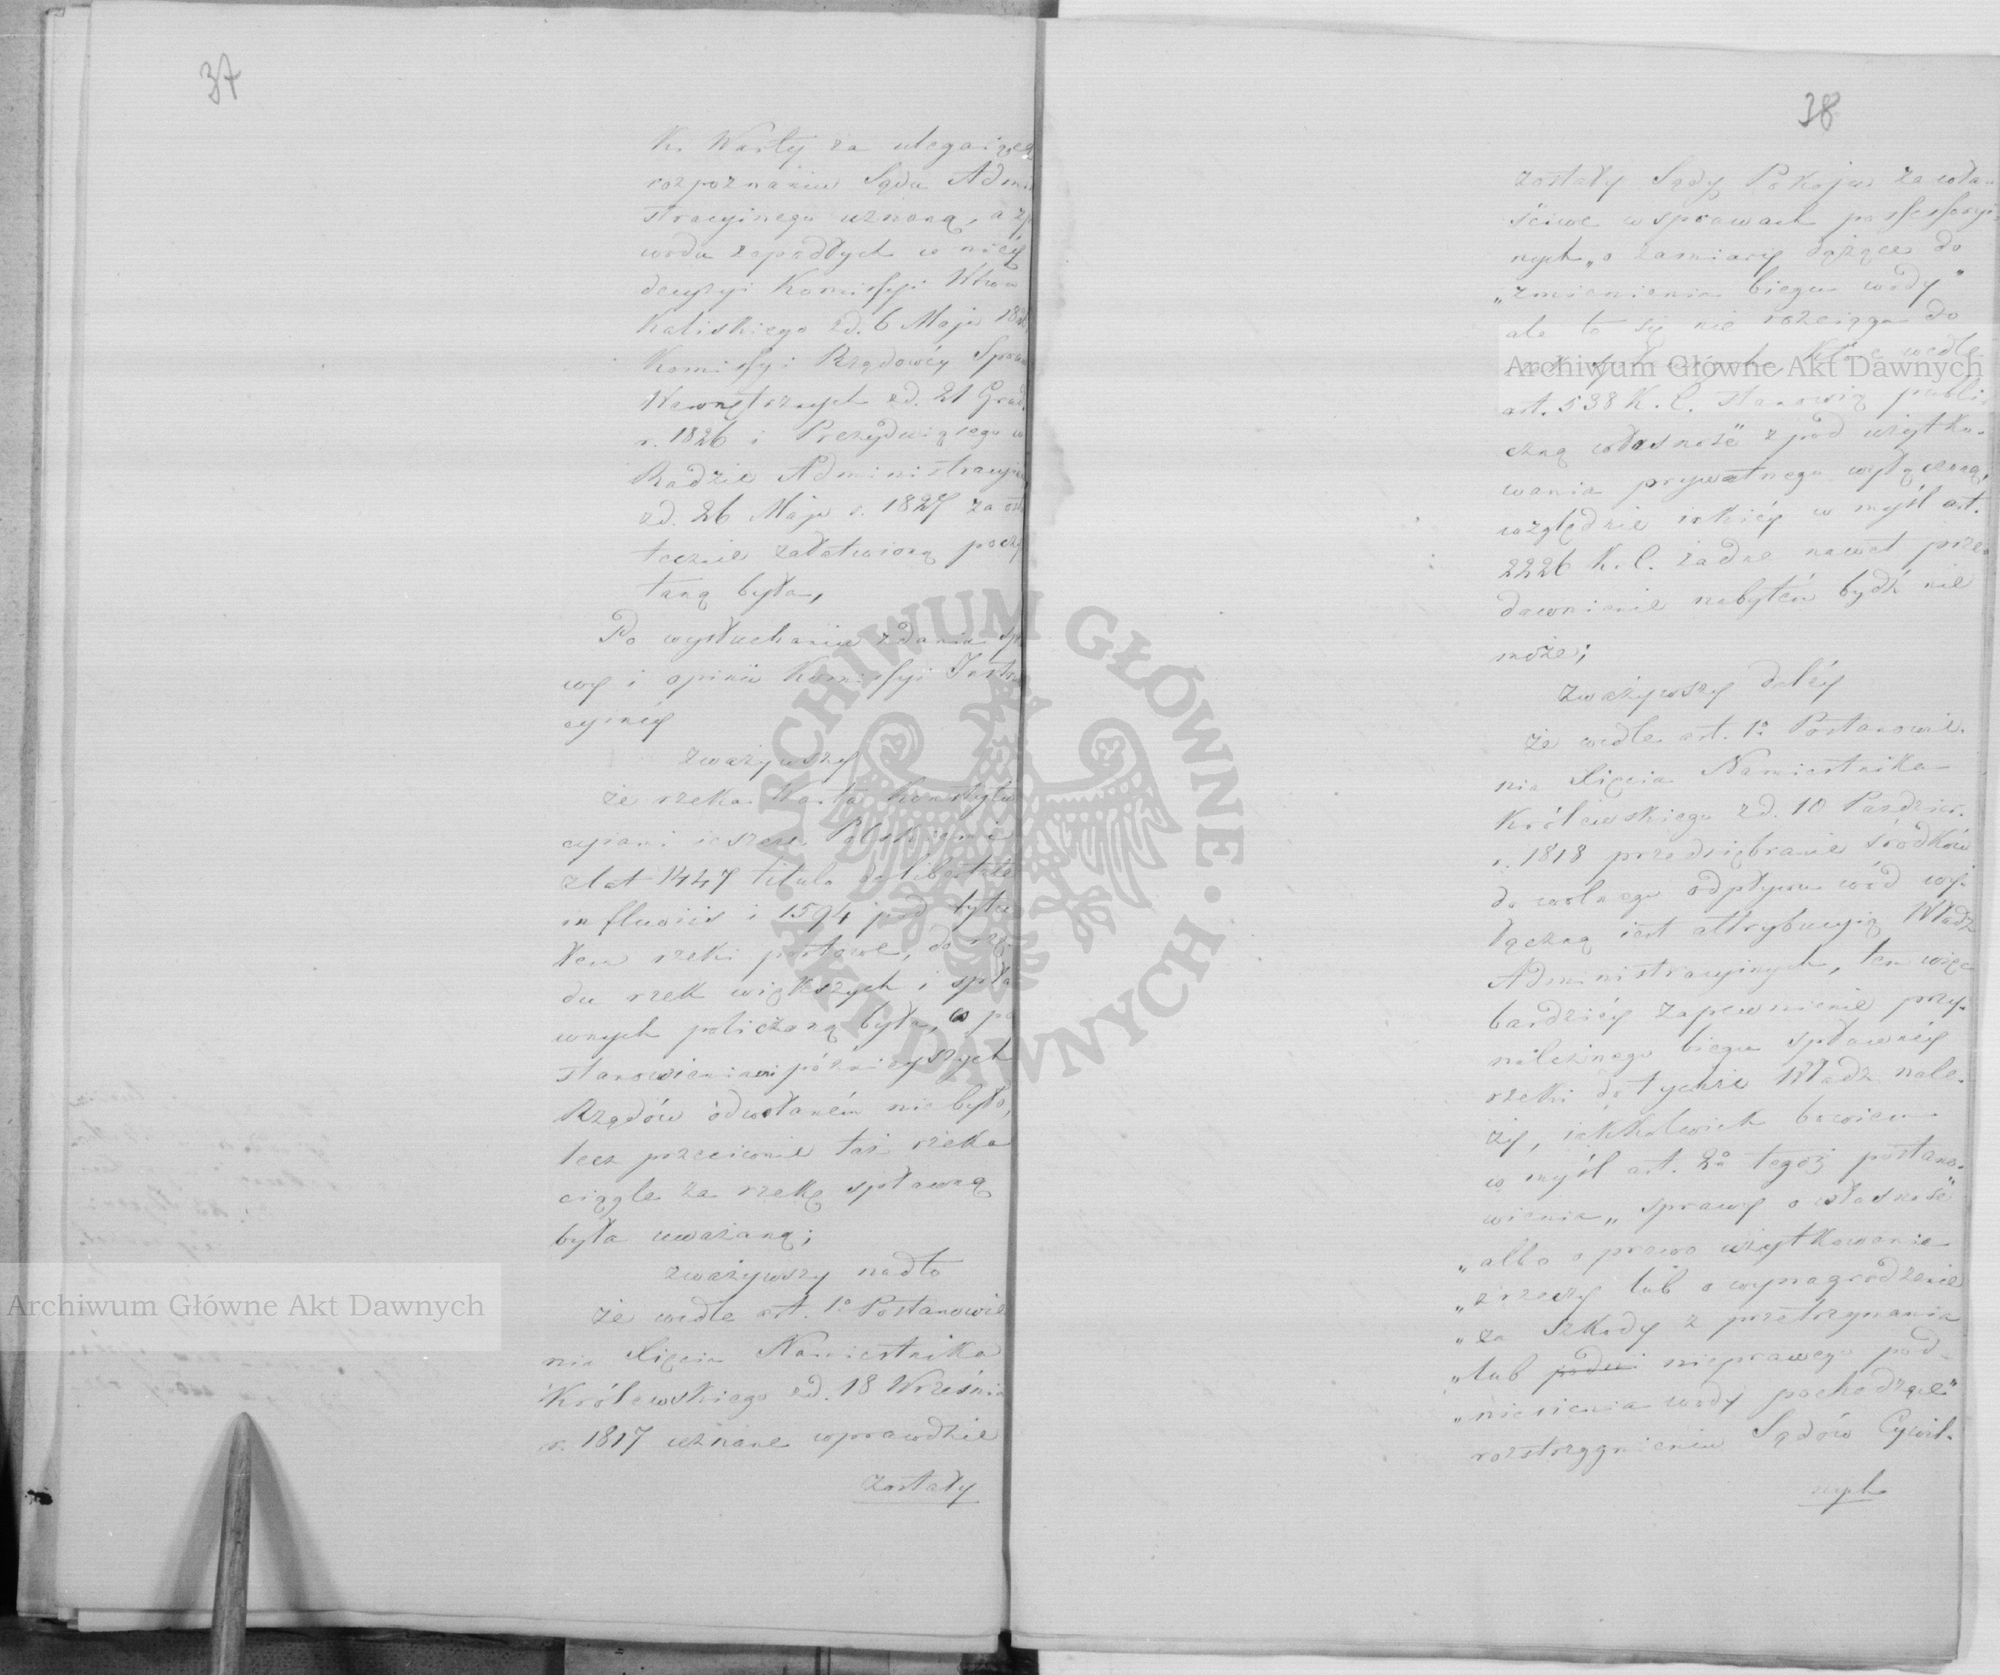 37
Ki Warty za ulegaiącą
rozpoznaniu Sądu Admi
stracyinego uznaną, a z
wodu zapadłych w niéy
decyzyi Kommissyi Wtwa
Kaliskiego z d. 6 Maja 182
Kommissyi Rządowéy Spraw
Wewnętrznych z d. 21 Grud.
r. 1826 i Prezyduiącego w
Radzie Administracyin
z d. 26 Maja r. 1827 za osta
tecznie załatwioną poczy
taną była,
Po wysłuchaniu zdania spra
wy i opinii Kommissyi Instru
cyinéy
zważywszy
że rzeka Warta Konstytu
cyiami ieszcze Polskiemi
z lat 1447 titulo de libertate
in fluviis i 1594 pod tytu
łem rzeki portowe, do rzę
du rzek większych i spła
wnych policzoną była, co po
stanowieniami późnieyszych
Rządów odwołaném nie było,
lecz przeciwnie taż rzeka
ciągle za rzekę spławną
była uważaną;
zważywszy nadto
że wedle art. 1º Postanowie
nia Xięcia Namiestnika
Królewskiego z d. 18 Września
r. 1817 uznane wprawdzie
zostały
38
zostały Sądy Pokoju za wła-
ściwe w sprawach possessoryi-
nych „o zamiary dążące do
„zmienienia biegu wody"
ale to się nie rozciąga do
rzek spławnych, które wedle
art. 538 K. C. stanowią publi-
czną własność z pod użytko-
wania prywatnego wyłączoną,
względzie iakiéy w myśl art.
2226 K. C. żadne nawet prze
dawnienie nabytém bydź nie
może;
zważywszy daléy
że wedle art. 1º Postanowie-
nia Xięcia Namiestnika
Królewskiego z d. 10 Paździer.
r. 1818 przedsiębranie środków
do wolnego odpływu wód wy-
łączną iest attrybucyią Władz
Administracyinych, tem więc
bardziéy zapewnienie przy-
należnego biegu spławnéy
rzeki do tychże Władz nale-
ży, iakkolwiek bowiem
w myśl art. 2º tegoż postano-
wienia „sprawy o własność
„albo o prawo użytkowania
„z rzeczy lub o wynagrodzenie
„za szkody z przetrzymania
„lub nieprawego pod-
„niesienia wody pochodzące"
rozstrzygnieniu Sądów Cywil-
nych
ARCHIWUM GŁÓWNE · AKT DAWNYCH ·
Archiwum Główne Akt Dawnych
Archiwum Główne Akt Dawnych